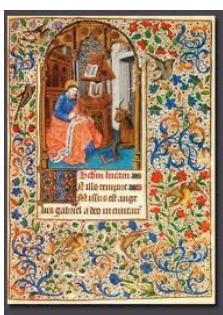 Scdm lucam
In illo tempore
Missus est ange
lus gabriel a deo in ciuitatē